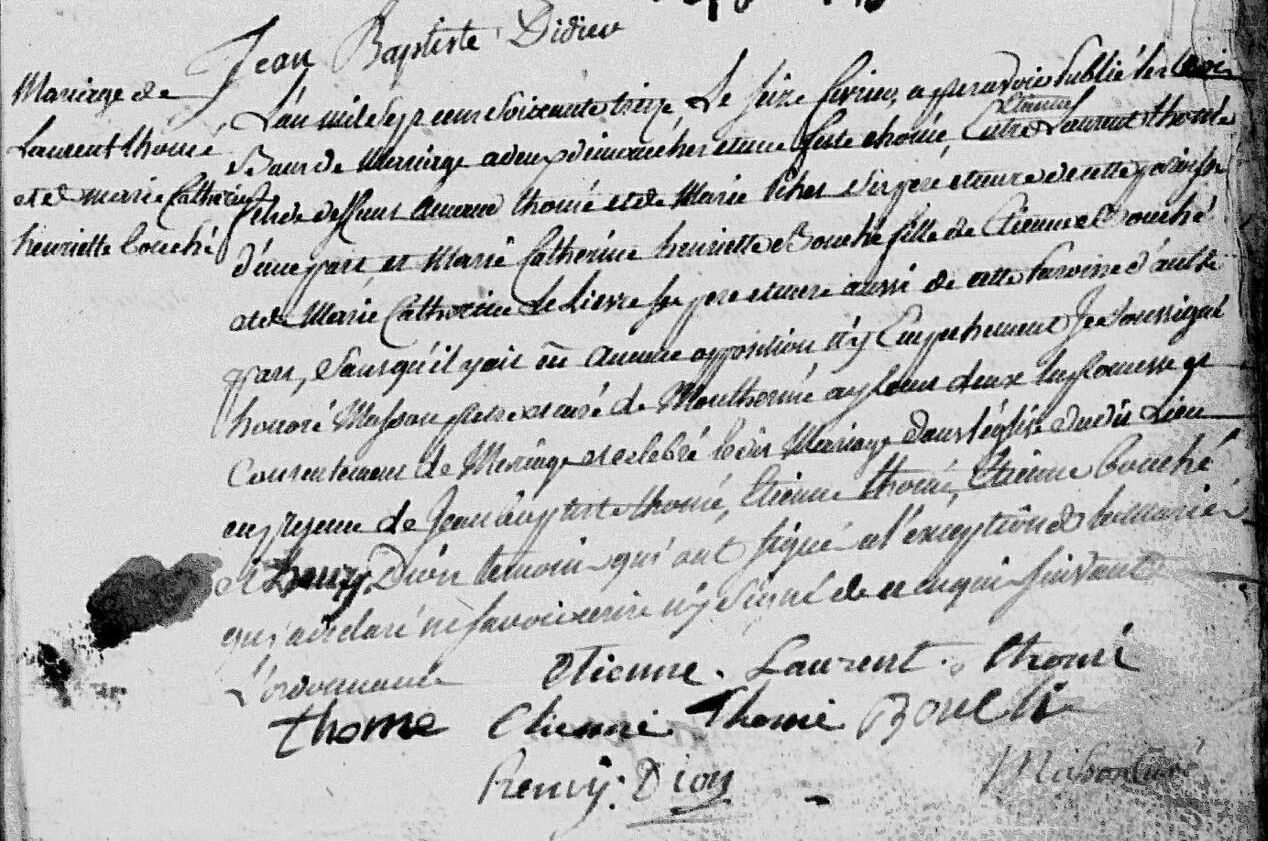 Jean Baptiste Didier
Mariage de
Laurent thomé
et de marie Catherine
henriette bouché
L'an mil Sept cent Soixante treize, Le Seize février, apres avoir publié les trois
Bans de Mariage a deux dimanches et une feste chomé, Entre Etienne Laurent thomé
fils de deffunt thomé et de Marie Ses pere et mere de cette paroisse
d'une part et Marie Catherine henriette Bouché fille de Etienne Bouché
et de Marie Catherine Le Lievre Ses pere et mere aussi de cette Paroisse d'autre
part, Sans qu'il y ait eû aucune opposition n'y Empechement Je Soussigné
honoré Masson pretre et curé de Monthermé ay pour deux la promesse et
Consentement de Mariage et celebré ledit Mariage dans l'église dudit Lieu
en presence de Jean baptiste thomé, Etienne thomé, Etienne bouché
et henry Dion temoins qui ont signé a l'exception de la mariée
qui a declaré ne savoir ecrire n'y Signé de ce enquis suivant
L'ordonnance etienne. Laurent. thomé
thome Etienne Thomé Bouché
henry. Dion Masson Curé